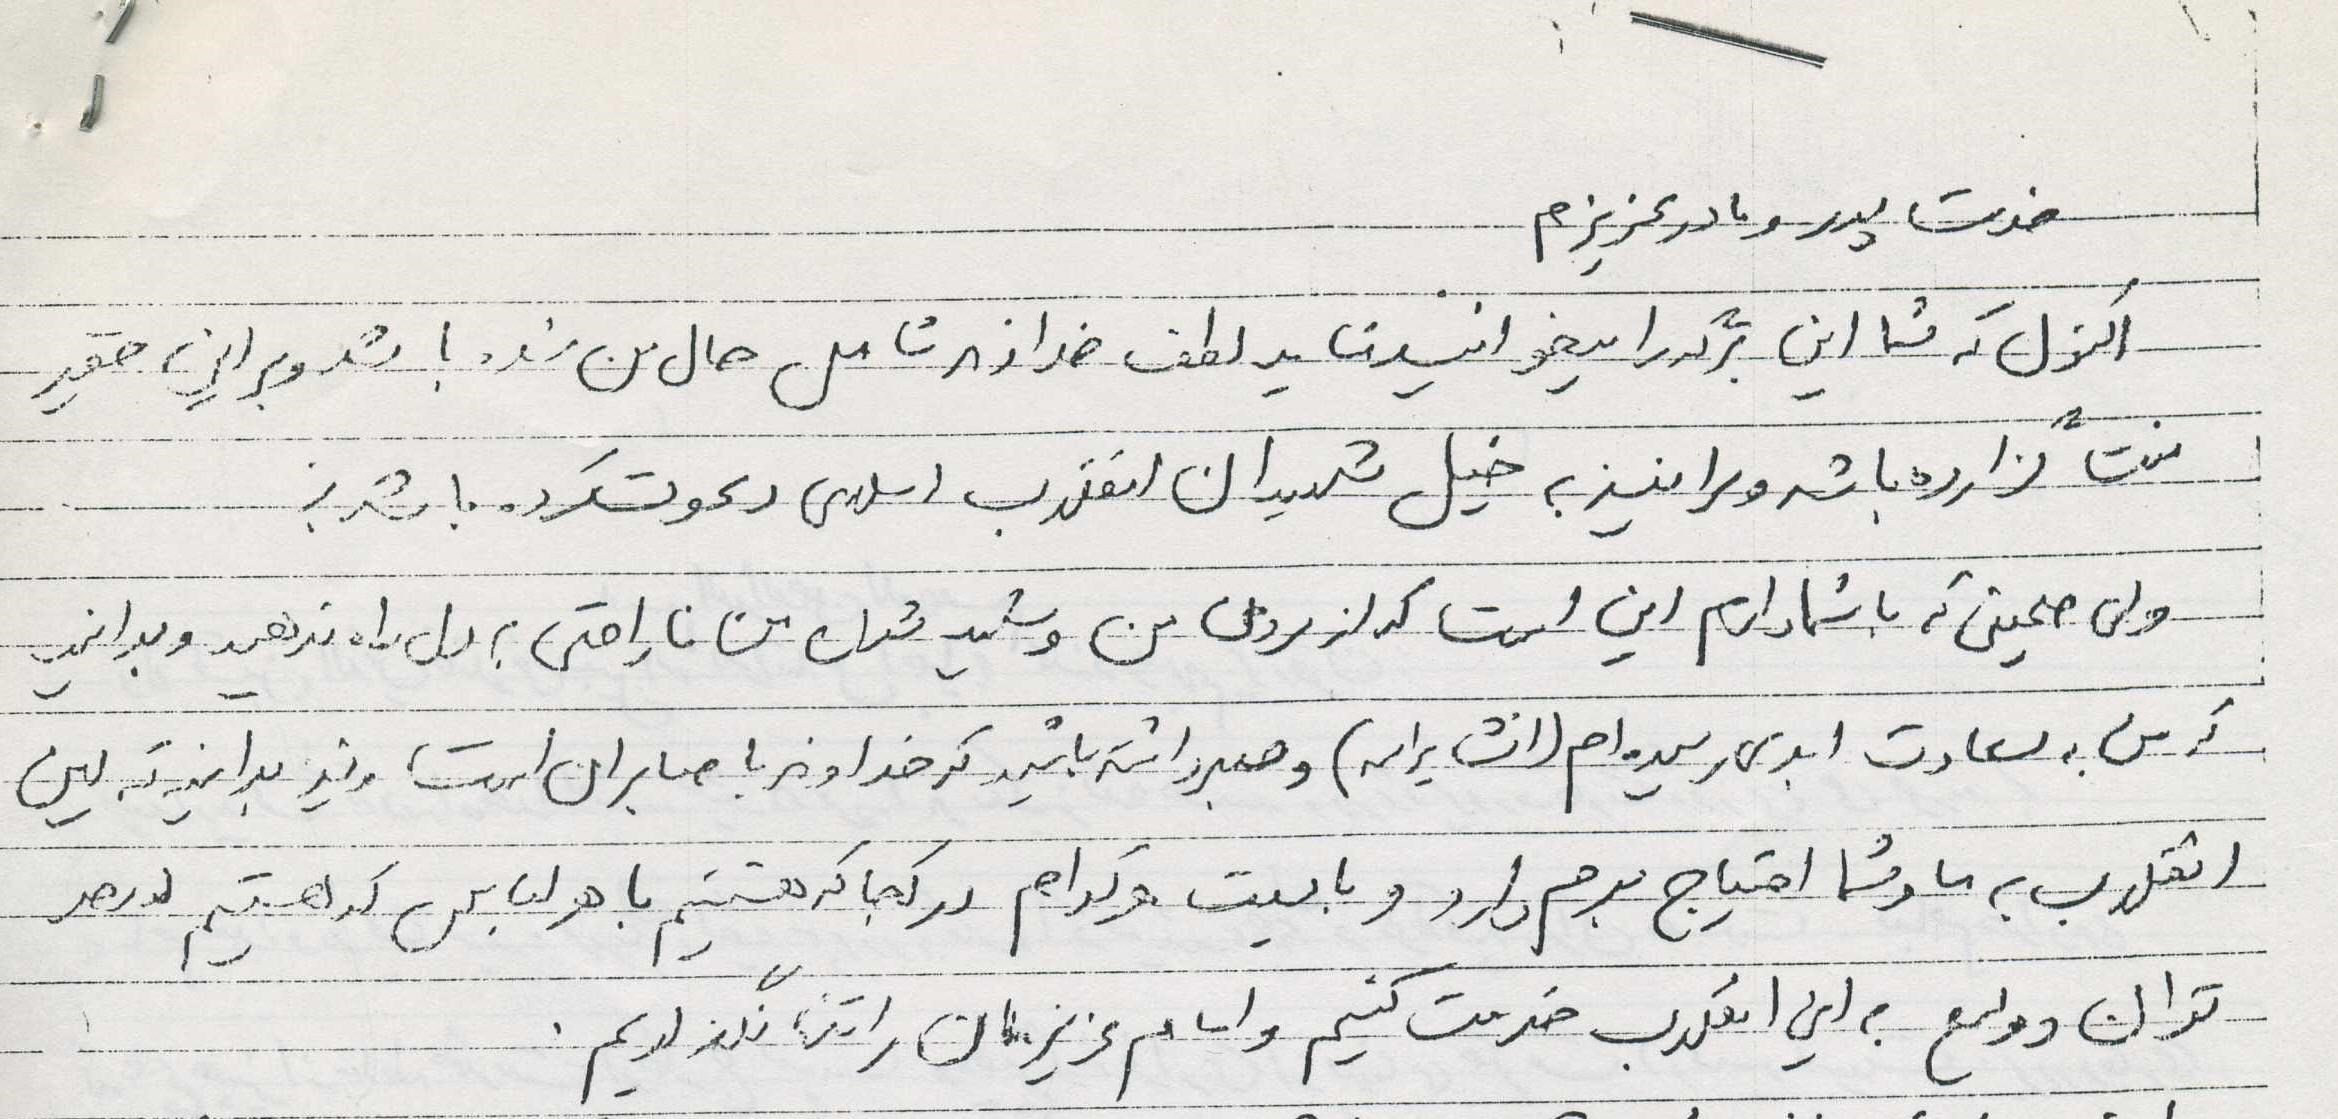 خدمت پدر و مادر عزیزم
اکنون که شما این برگه را میخوانید شاید لطف خداوند شامل حال من شده باشد و بر این حقیر
منت گزارده باشد و مرا نیز به خیل شهیدان انقلاب اسلامی دعوت کرده باشد
ولی صحبتی که با شما دارم این است که از مردن من و شهید شدن من ناراحتی به دل راه ندهید و بدانید
که من به سعادت ابدی رسیده‌ام (انشاءالله) و صبر داشته باشید که خداوند با صابران است و نیز بدانید که این
انقلاب به ما و شما احتیاج مبرم دارد و بایست هرکدام در کجا که هستیم با هر لباسی که هستیم در حد
توان و وسع به این انقلاب خدمت کنیم و امام عزیزمان را تنها نگذاریم .